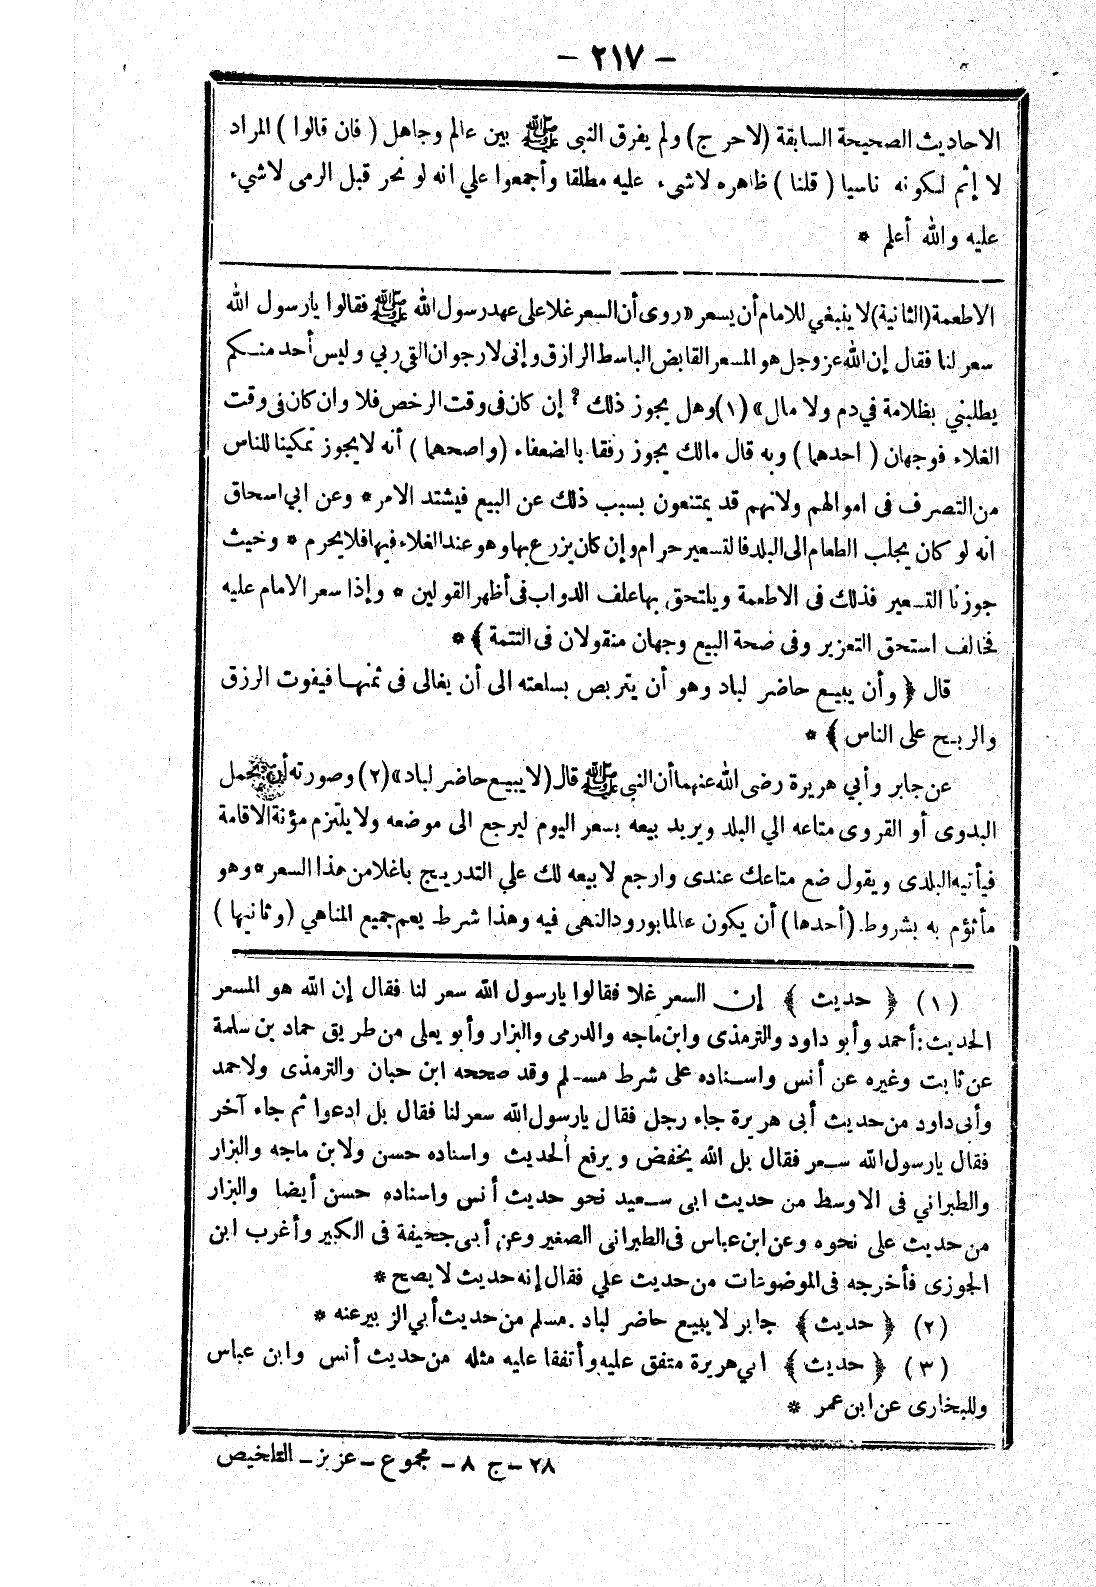 — ٢١٧ —
الاحاديث الصحيحة السابقة (لا حرج) ولم يفرق النبى ﷺ بين عالم وجاهل (فان قالوا) المراد
لا إثم لكونه ناسيا (قلنا) ظاهره لاشىء عليه مطلقا وأجمعوا علي انه لو نحر قبل الرمى لاشيء
عليه والله أعلم *
الاطعمة (الثانية) لا ينبغي للامام أن يسعر «روى أن السعر غلا على عهد رسول الله ﷺ فقالوا يارسول الله
سعر لنا فقال إن الله عز وجل هو المسعر القابض الباسط الرازق وإنى لارجو ان القي ربي وليس أحد منكم
يطلبني بظلامة في دم ولا مال» (١) وهل يجوز ذلك ؟ إن كان فى وقت الرخص فلا وان كان فى وقت
الغلاء فوجهان (احدهما) وبه قال مالك يجوز رفقا بالضعفاء (واصحهما) أنه لا يجوز تمكينا للناس
من التصرف فى اموالهم ولانهم قد يمتنعون بسبب ذلك عن البيع فيشتد الامر * وعن ابي اسحاق
انه لو كان يجلب الطعام الى البلد فالتسعير حرام وإن كان يزرع بها وهو عند الغلاء فيها فلا يحرم * وحيث
جوزنا التسعير فذلك فى الاطعمة ويلتحق بها علف الدواب فى أظهر القولين * وإذا سعر الامام عليه
فخالف استحق التعزير وفى صحة البيع وجهان منقولان فى التتمة ﴾ *
قال ﴿ وأن يبيع حاضر لباد وهو أن يتربص بسلعته الى أن يغالى فى ثمنها فيفوت الرزق
والربح على الناس ﴾ *
عن جابر وأبي هريرة رضى الله عنهما أن النبى ﷺ قال (لا يبيع حاضر لباد» (٢) وصورته أن يحمل
البدوى أو القروى متاعه الي البلد ويريد بيعه بسعر اليوم ليرجع الى موضعه ولا يلتزم مؤنة الاقامة
فيأتيه البلدى ويقول ضع متاعك عندى وارجع لابيعه لك علي التدريج باغلا من هذا السعر * وهو
مأثؤم به بشروط. (أحدها) أن يكون عالما بورود النهى فيه وهذا شرط يعم جميع المناهي (وثانيها)
(١) ﴿ حديث ﴾ إن السعر غلا فقالوا يارسول الله سعر لنا فقال إن الله هو المسعر
الحديث: أحمد وأبو داود والترمذى وابن ماجه والدرمى والبزار وأبو يعلى من طريق حماد بن سلمة
عن ثابت وغيره عن أنس واسناده على شرط مسلم وقد صححه ابن حبان والترمذى ولاحمد
وأبى داود من حديث أبى هريرة جاء رجل فقال يارسول الله سعر لنا فقال بل ادعوا ثم جاء آخر
فقال يارسول الله سعر فقال بل الله يخفض ويرفع الحديث واسناده حسن ولابن ماجه والبزار
والطبراني فى الاوسط من حديث ابى سعيد نحو حديث أنس واسناده حسن أيضا والبزار
من حديث على نحوه وعن ابن عباس فى الطبرانى الصغير وعن أبى جحيفة فى الكبير وأغرب ابن
الجوزى فأخرجه فى الموضوعات من حديث علي فقال إنه حديث لا يصح *
(٢) ﴿ حديث ﴾ جابر لا يبيع حاضر لباد . مسلم من حديث أبي الزبير عنه *
(٣) ﴿ حديث ﴾ ابي هريرة متفق عليه وأتفقا عليه مثله من حديث أنس وابن عباس
وللبخارى عن ابن عمر *
٢٨ – ج ٨ – مجموع – عزيز – التلخيص